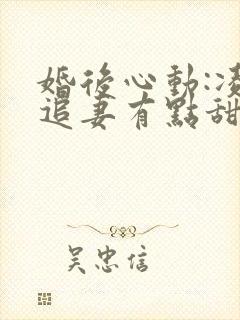 婚後心動:凌
追妻有點甜
吳忠信